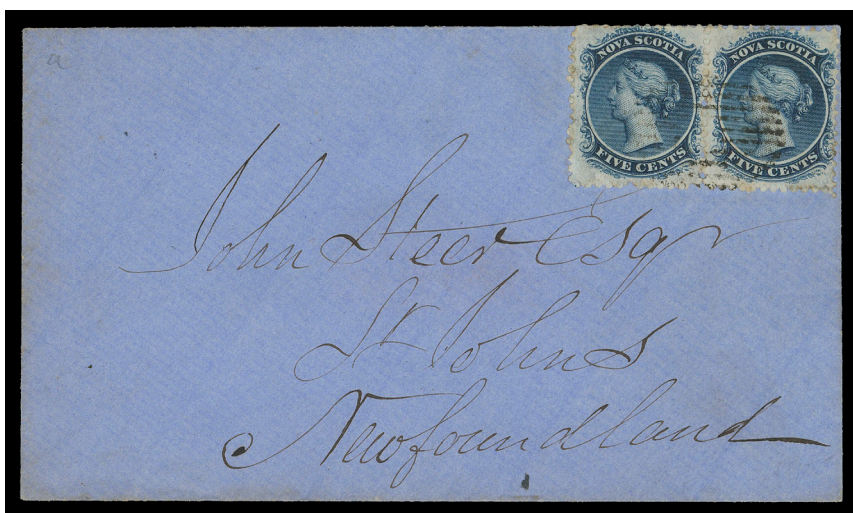 a
NOVA SCOTIA
FIVE CENTS
NOVA SCOTIA
FIVE CENTS
John Steer Esqr
St Johns
Newfoundland